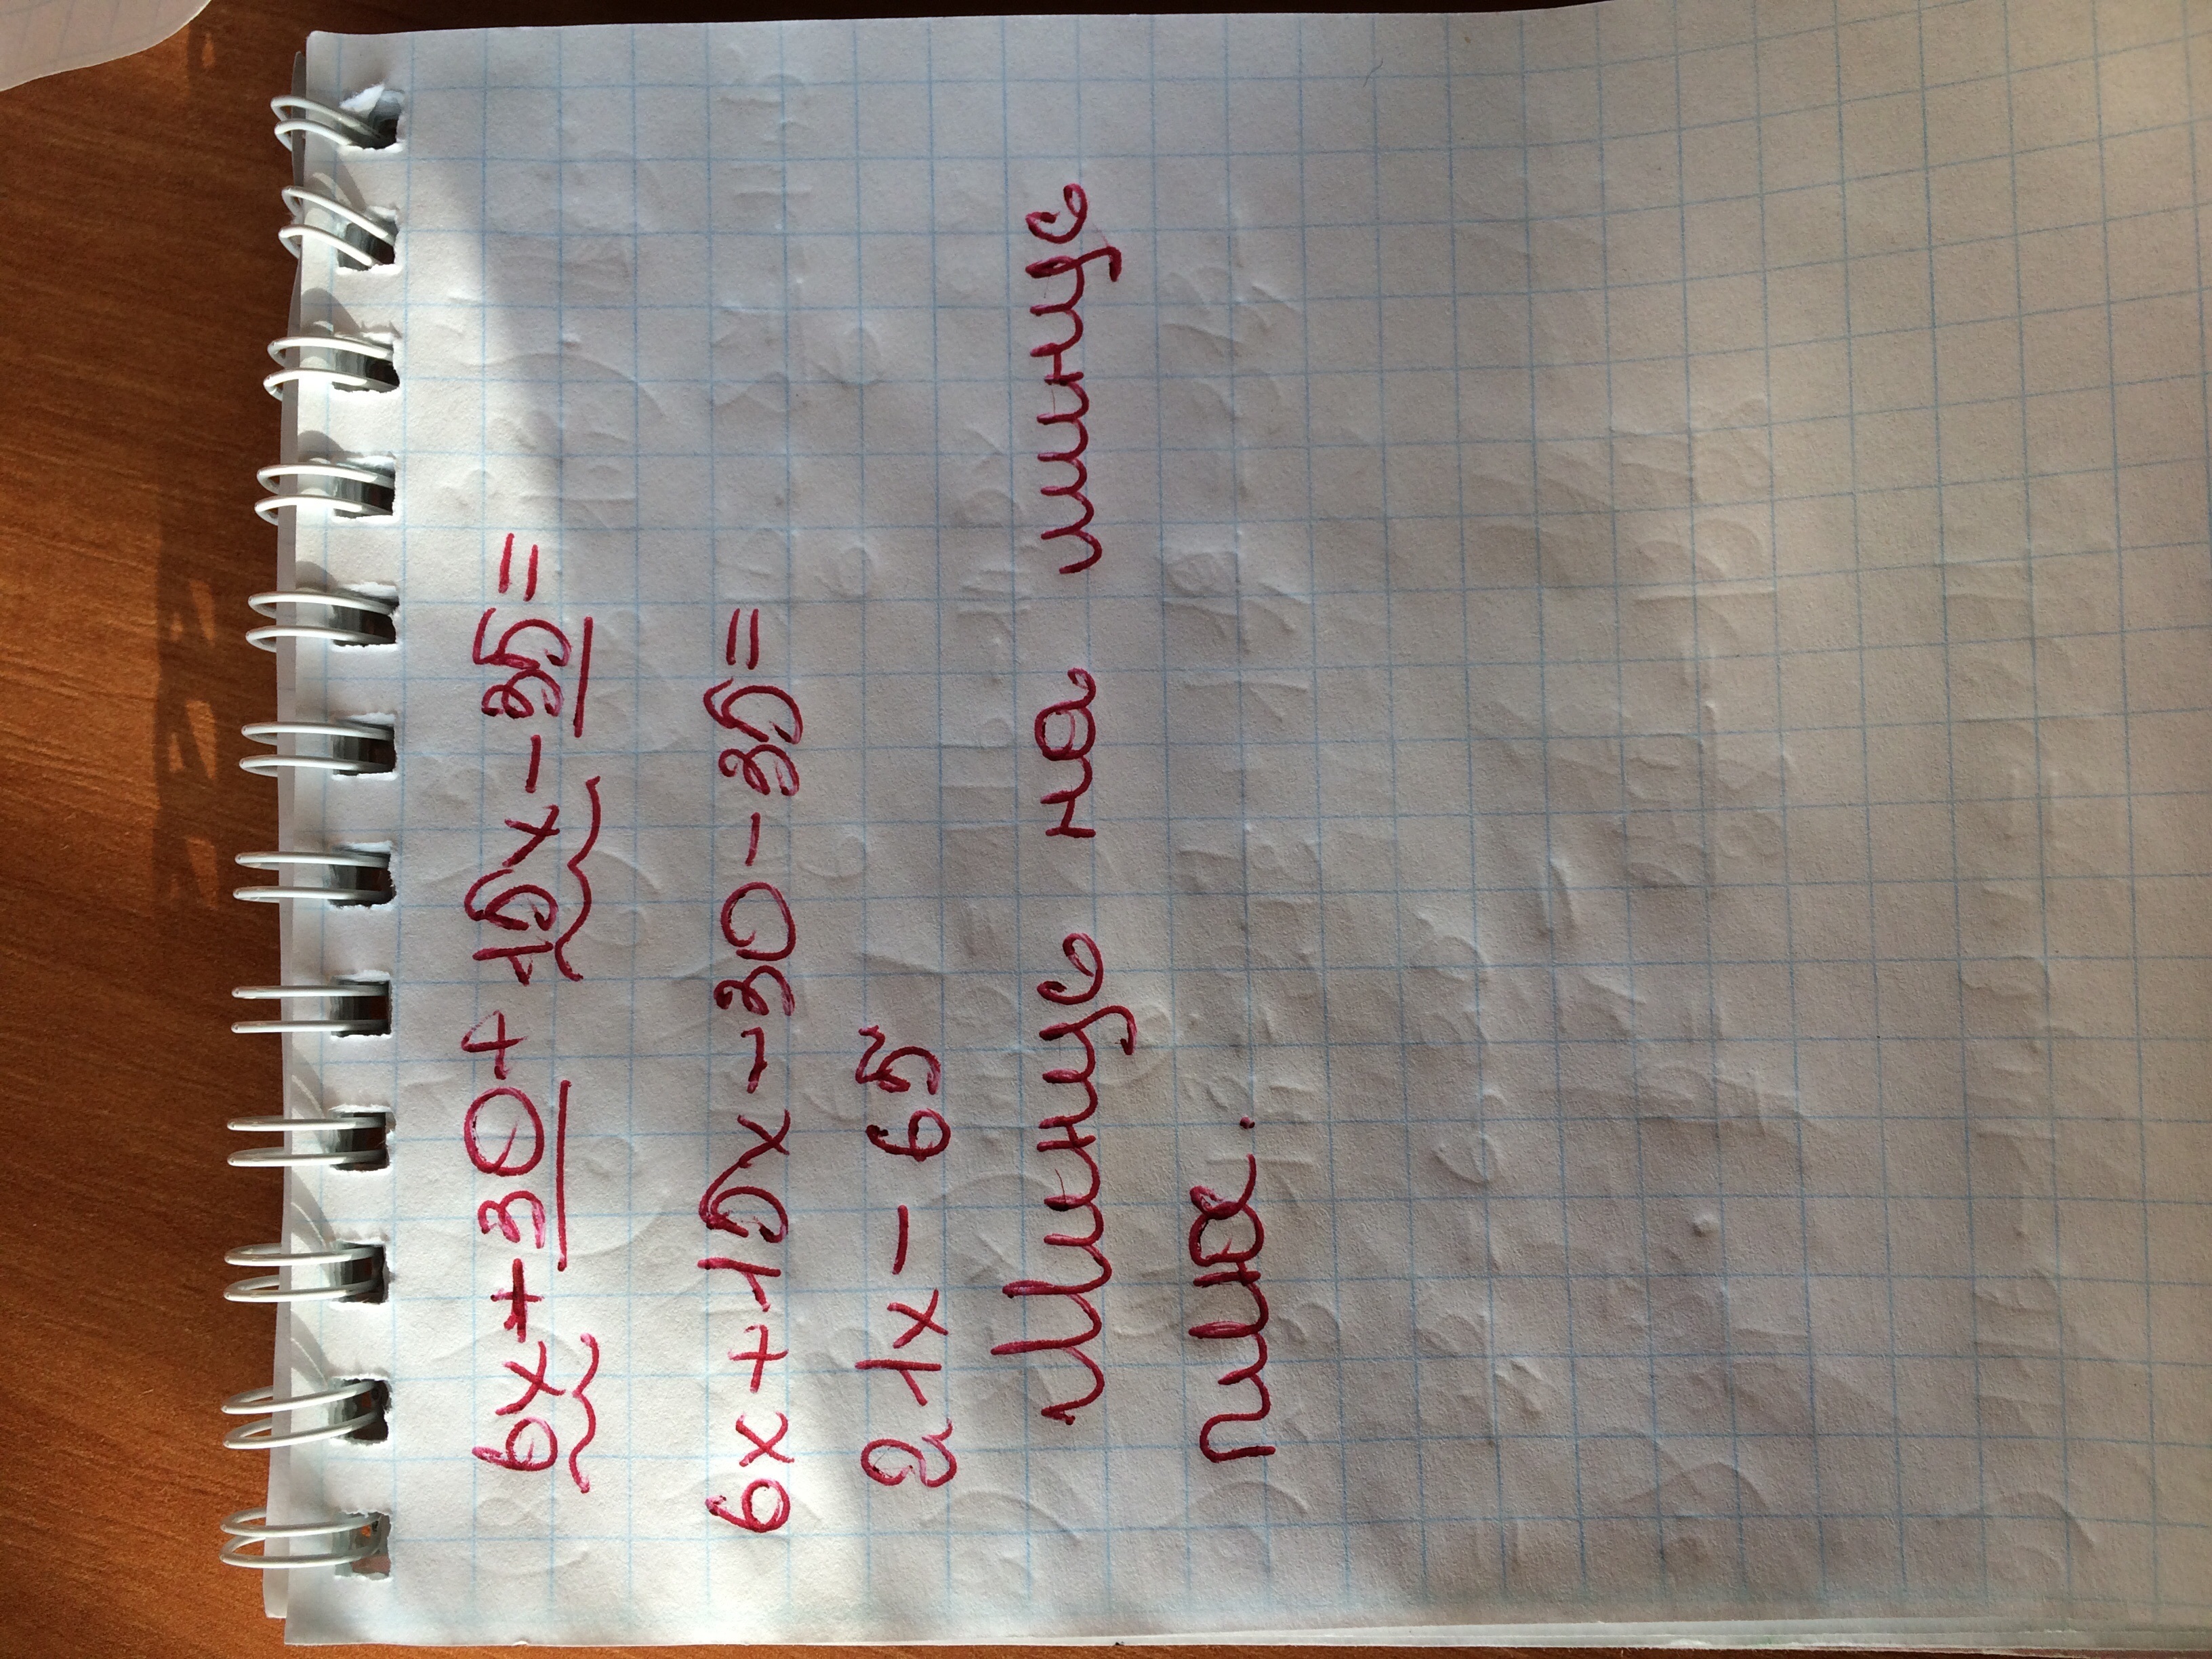 6x+30+15x-35=
6x+15x-30-35=
21x-65
Минус на минус
плюс.